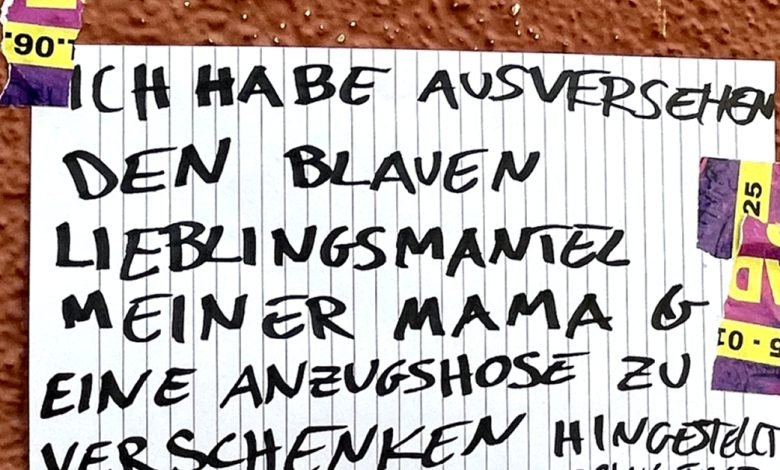 ICH HABE AUSVERSEHEN
DEN BLAUEN
LIEBLINGSMANTEL
MEINER MAMA &
EINE ANZUGSHOSE ZU
VERSCHENKEN HINGESTELLT
.90
25